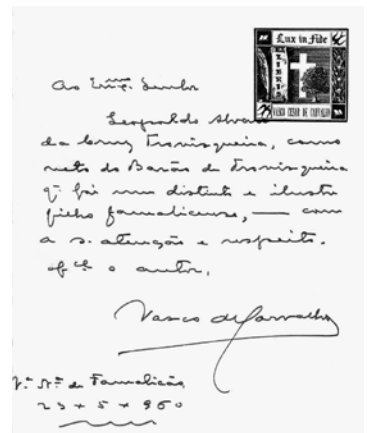 Lux in Fide
EX LIBRIS
VASCO CESAR DE CARVALHO
Ao Exmo. Senhor
Leopoldo
da Cruz Trovisqueira, como
neto do Barão de Trovisqueira
q. foi um distinto e ilustre
filho famalicense, — com
a s. atenção e respeito.
of. o autor,
Vasco de Carvalho
Vª. Nª. de Famalicão,
23 * 5 * 960